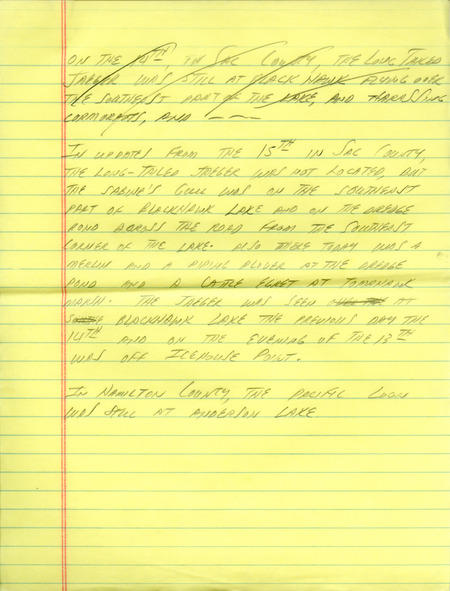 ON THE 14TH, IN SAC COUNTY, THE LONG TAILED
JAEGER WAS STILL AT BLACK HAWK FLYING OVER
THE SOUTHEAST PART OF THE LAKE, AND HARASSING
CORMORANTS, AND ---
IN UPDATES FROM THE 15TH IN SAC COUNTY,
THE LONG-TAILED JAEGER WAS NOT LOCATED, BUT
THE SABINE'S GULL WAS ON THE SOUTHEAST
PART OF BLACKHAWK LAKE AND ON THE DREDGE
POND ACROSS THE ROAD FROM THE SOUTHEAST
CORNER OF THE LAKE. ALSO THERE TODAY WAS A
MERLIN AND A PIPING PLOVER AT THE DREDGE
POND AND A CATTLE EGRET AT TOMAHAWK
MARSH. THE JAEGER WAS SEEN AT
BLACKHAWK LAKE THE PREVIOUS DAY THE
14TH AND ON THE EVENING OF THE 13TH
WAS OFF ICEHOUSE POINT.
IN HAMILTON COUNTY, THE PACIFIC LOON
WAS STILL AT ANDERSON LAKE